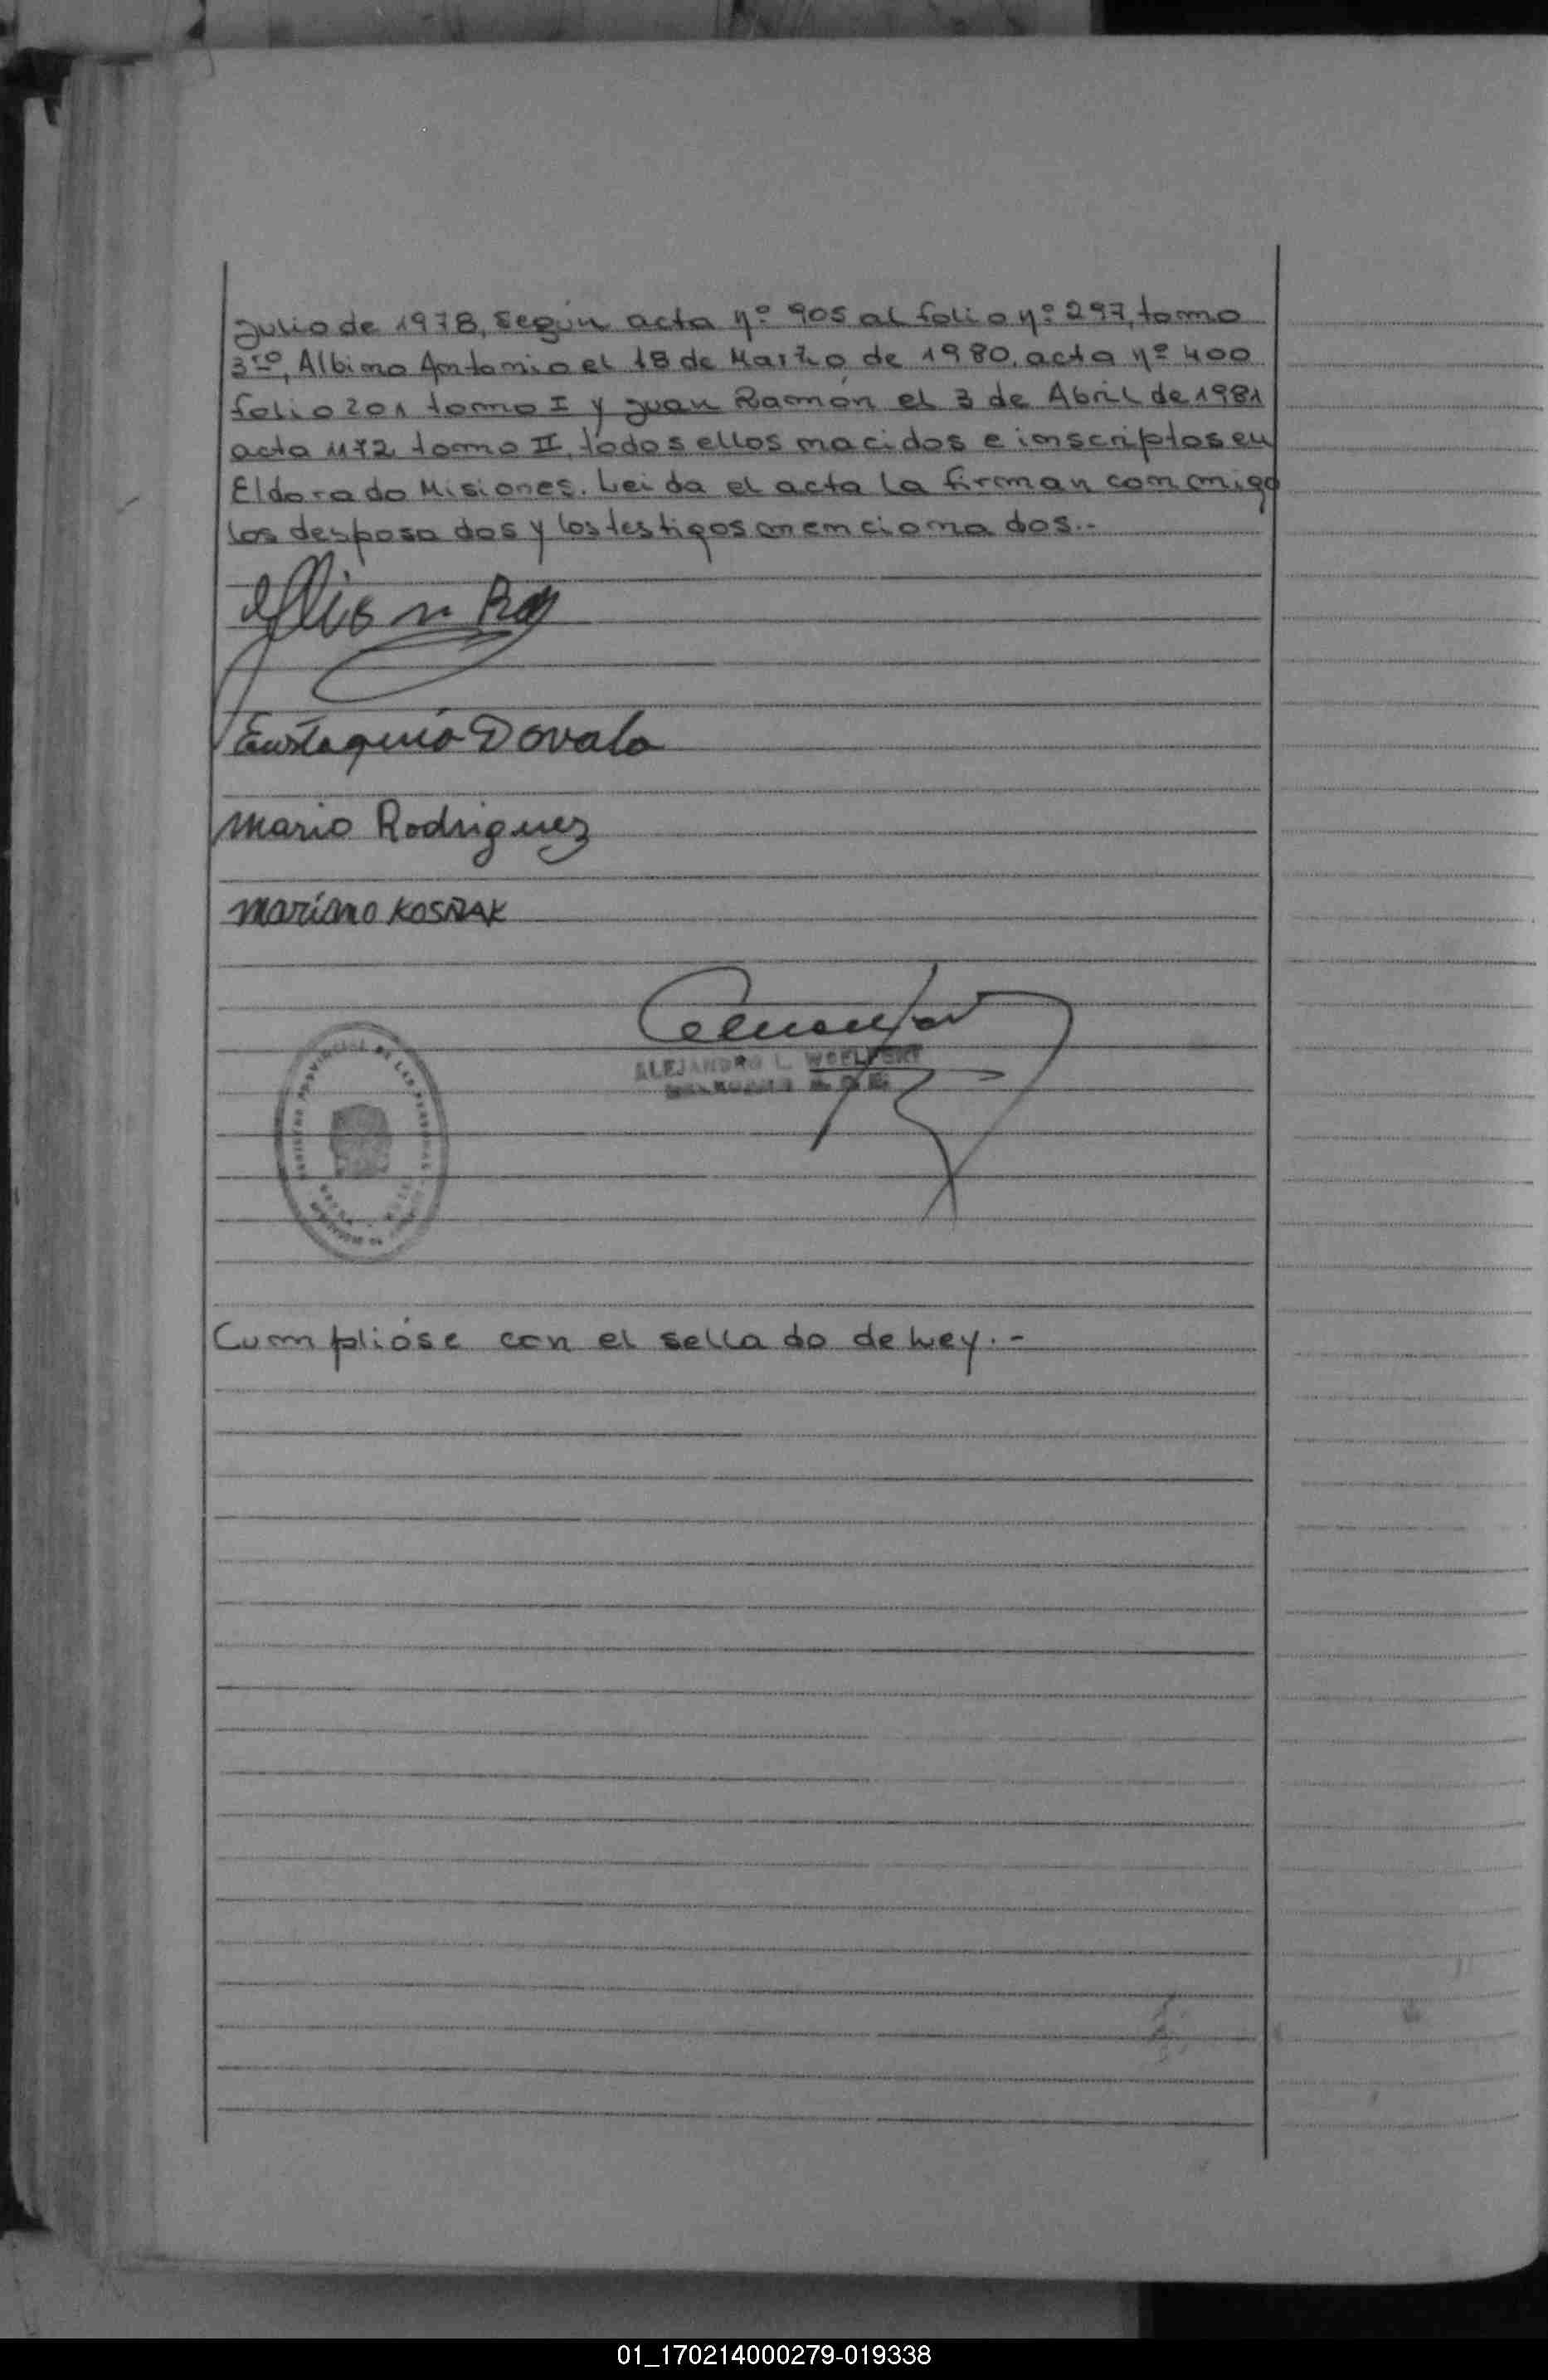 Julio de 1978, según acta nº 905 al folio nº 297, tomo
3ro, Albino Antonio el 18 de Marzo de 1980, acta nº 400
folio 201 tomo I y Juan Ramón el 3 de Abril de 1981
acta 472 tomo II, todos ellos nacidos e inscriptos en
Eldorado Misiones. Leida el acta la firman conmigo
los desposados y los testigos mencionados.-
Eustaquia Dovala
Mario Rodriguez
Mariano KOSÑAK
ALEJANDRO L.
REGISTRO PROVINCIAL DE LAS PERSONAS
Cumplióse con el sellado de Ley.-
01_170214000279-019338